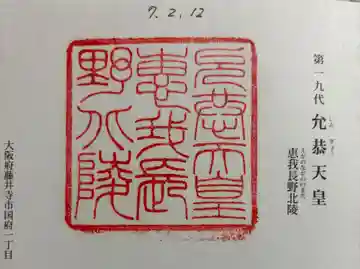 7.2.12
第一九代 允恭天皇
いんぎょう
恵我長野北陵
えがのながののきたの
允恭天皇
惠我長
野北陵
大阪府藤井寺市国府一丁目